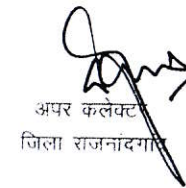 अपर कलेक्टर
जिला राजनांदगांव